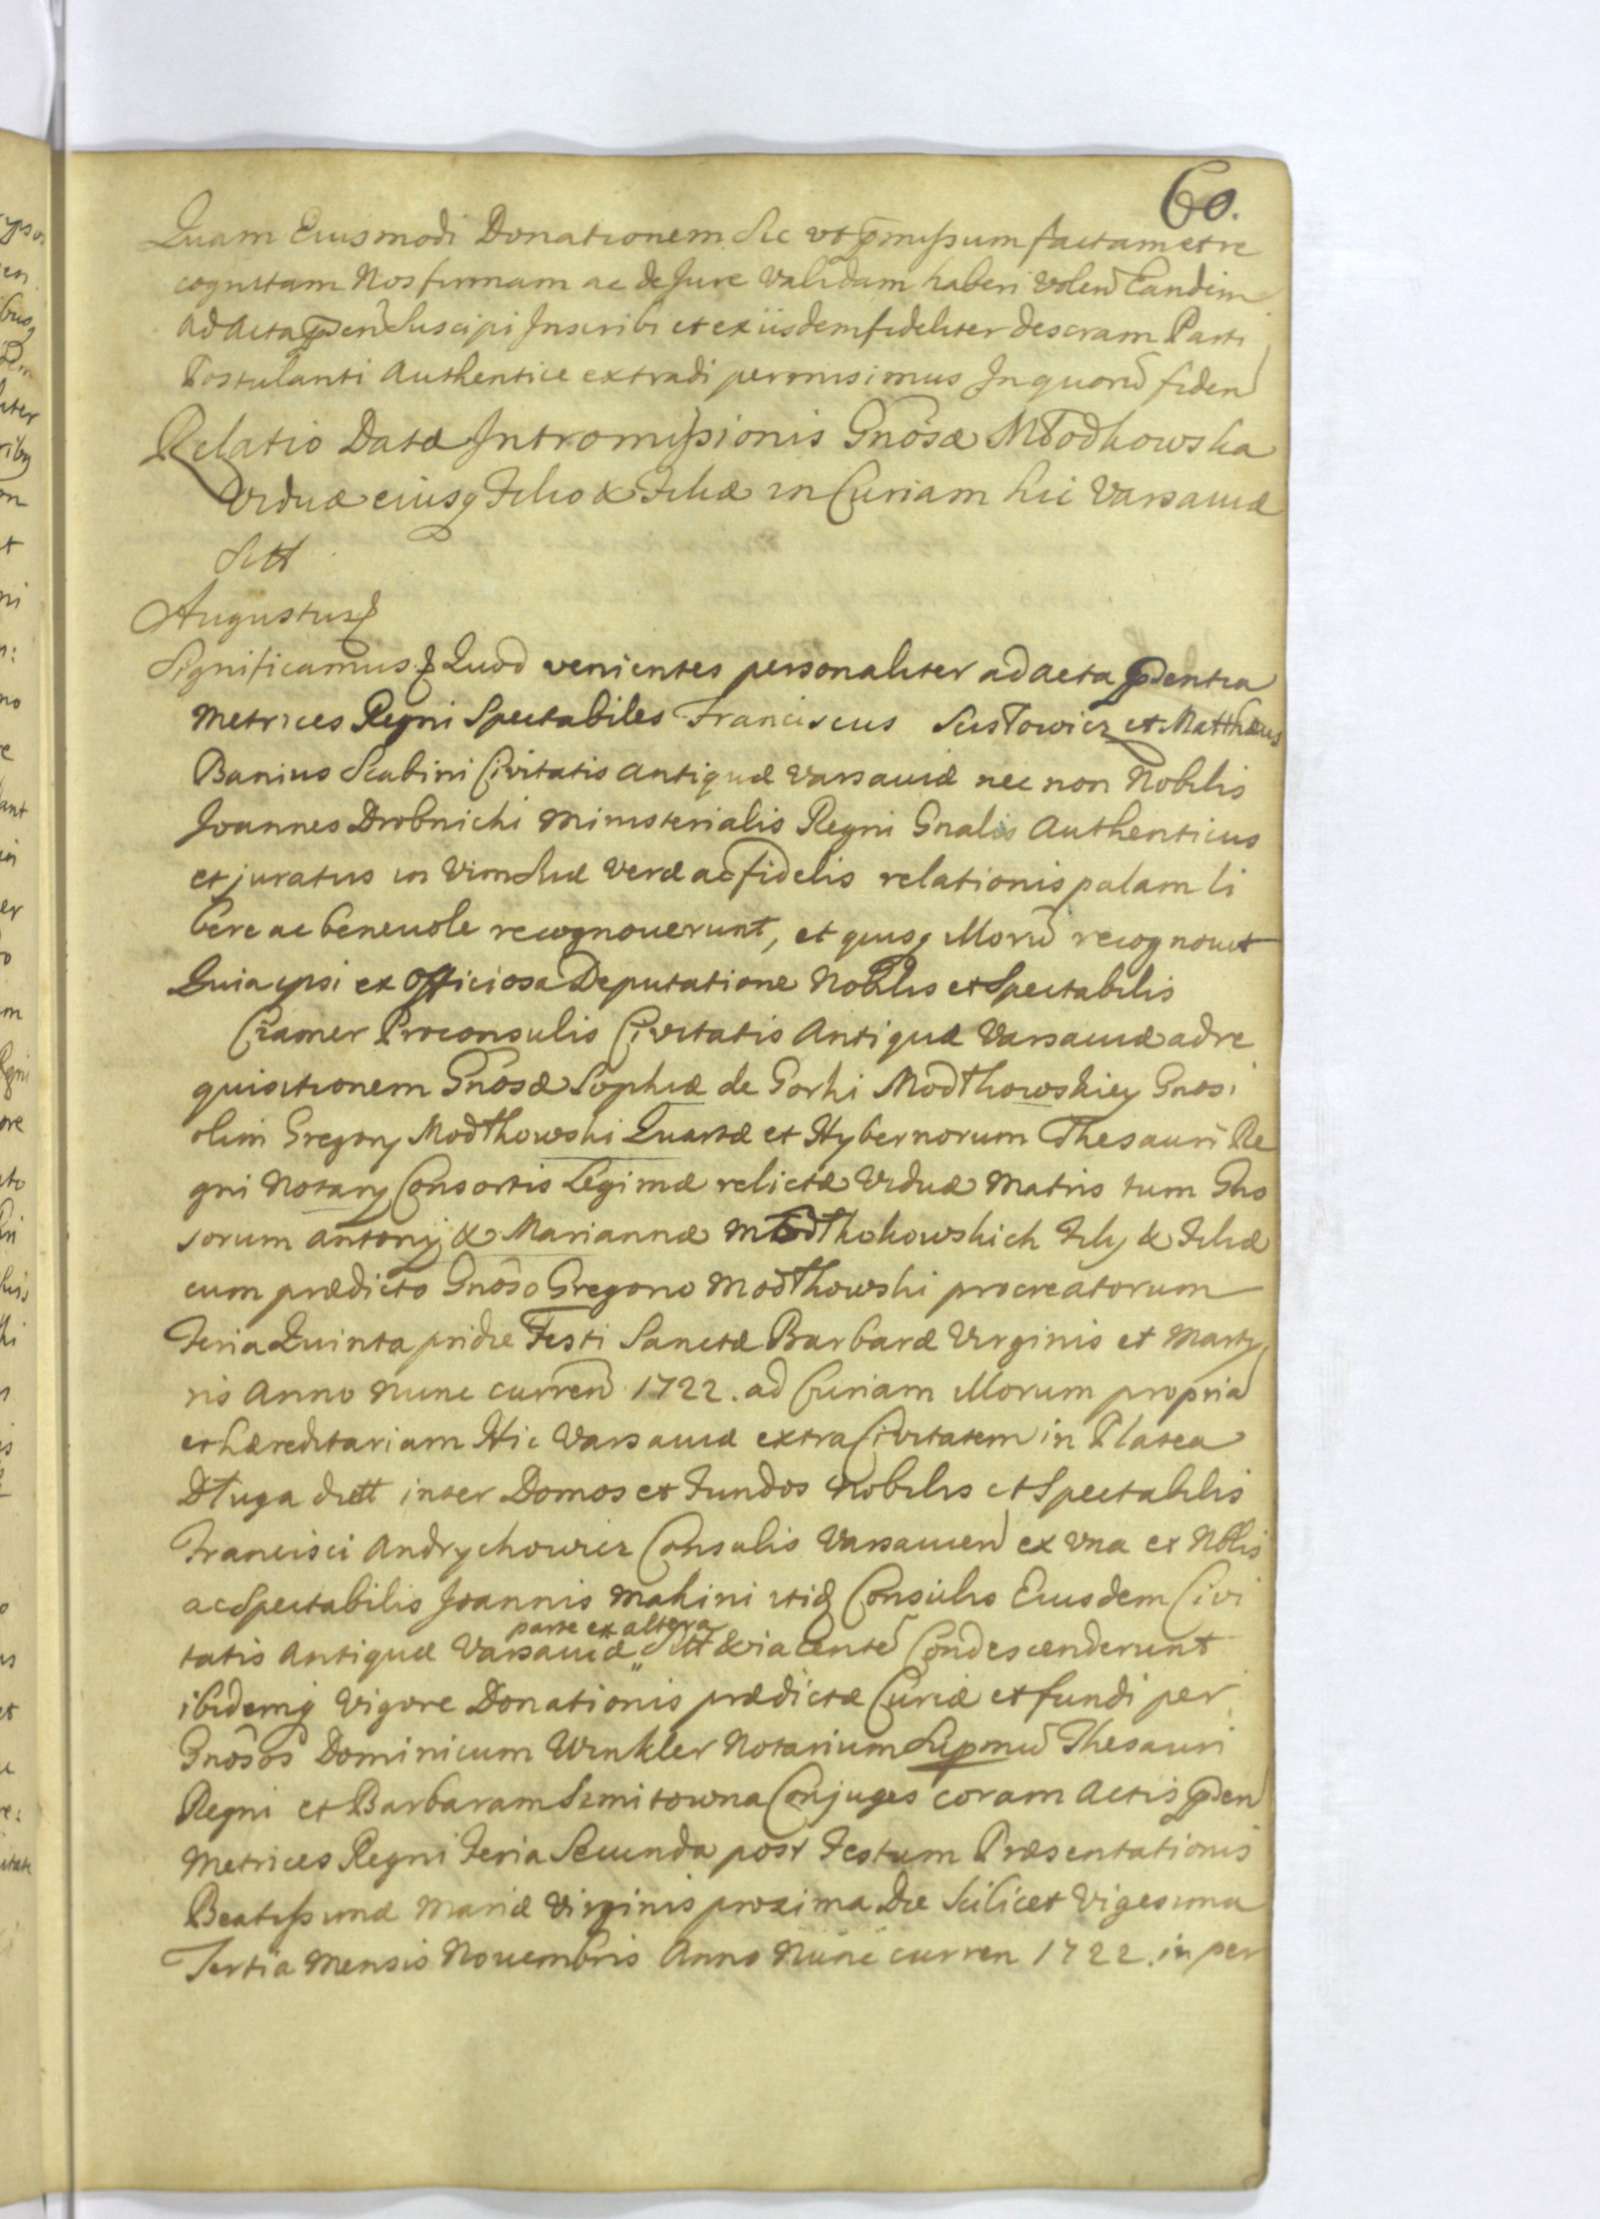 60.
Quam Eiusmodi Donationem Sic vt pmissum factam et re
cognitam Nos firmam ac de Jure Validam haberi Volen Eandem
Ad Acta pden Suscipi Inscribi et ex iisdem fideliter descram Parti
Postulanti Authentice extradi permisimus In quorũ fidem
Relatio Datæ Intromissionis Gnosæ Młodkowska
Viduæ eiusq Filio & Filiæ in Curiam hic Varsaviæ
Sitt
Augustus
Significamus Quod venientes personaliter ad acta pdentia
Metrices Regni Spectabiles Franciscus Susłowicz et Matthæus
Banius Scabini Civitatis Antiquæ Varsaviæ nec non Nobilis
Joannes Drobnicki Ministerialis Regni Gnalis Authenticus
et juratus in Vim Suæ Veræ ac fidelis relationis palam li
bere ac beneuole recognouerunt, et quisq Illorũ recognouit
Quia ipsi ex Officiosa Deputatione Nobilis et Spectabilis
Cramer Proconsulis Civitatis Antiquæ Varsauiæ ad re
quisitionem Gnosæ Sophiæ de Gorki Modłkowskiey Gnosi
olim Gregorij Modłkowski Quartæ et Hybernorum Thesauri Re
gni Notarij Consortis Legimæ relictæ Viduæ Matris tum Gno
sorum Antonij & Mariannæ Modłkokowskich Filij & Filiæ
cum prædicto Gnoso Gregorio Modłkowski procreatorum
Feria Quinta pridie Festi Sanctæ Barbaræ Virginis et Marty
ris Anno nunc curren 1722. ad Curiam Illorum propria
et hæreditariam Hic Varsauiæ extra Civitatem in Platea
Długa dictt inter Domos et Fundos Nobilis et Spectabilis
Francisci Andrychowicz Consulis Varsauien ex vna et Nblis
ac Spectabilis Joannis Makini itid Consulis Eiusdem Civi
parte ex altera
tatis Antiquæ Varsauiæ Sitt & iacente Condescenderunt
ibidemq Vigore Donationis prædictæ Curiæ et fundi per
Gnosos Dominicum Winkler Notarium Supmũ Thesauri
Regni et Barbaram Semitowna Conjuges coram Actis pden
Metrices Regni Feria Secunda post Festum Præsentationis
Beatissimæ Mariæ Virginis proxima Die Scilicet Vigesima
Tertia Mensis Nouembris Anno Nunc curren 1722. in per